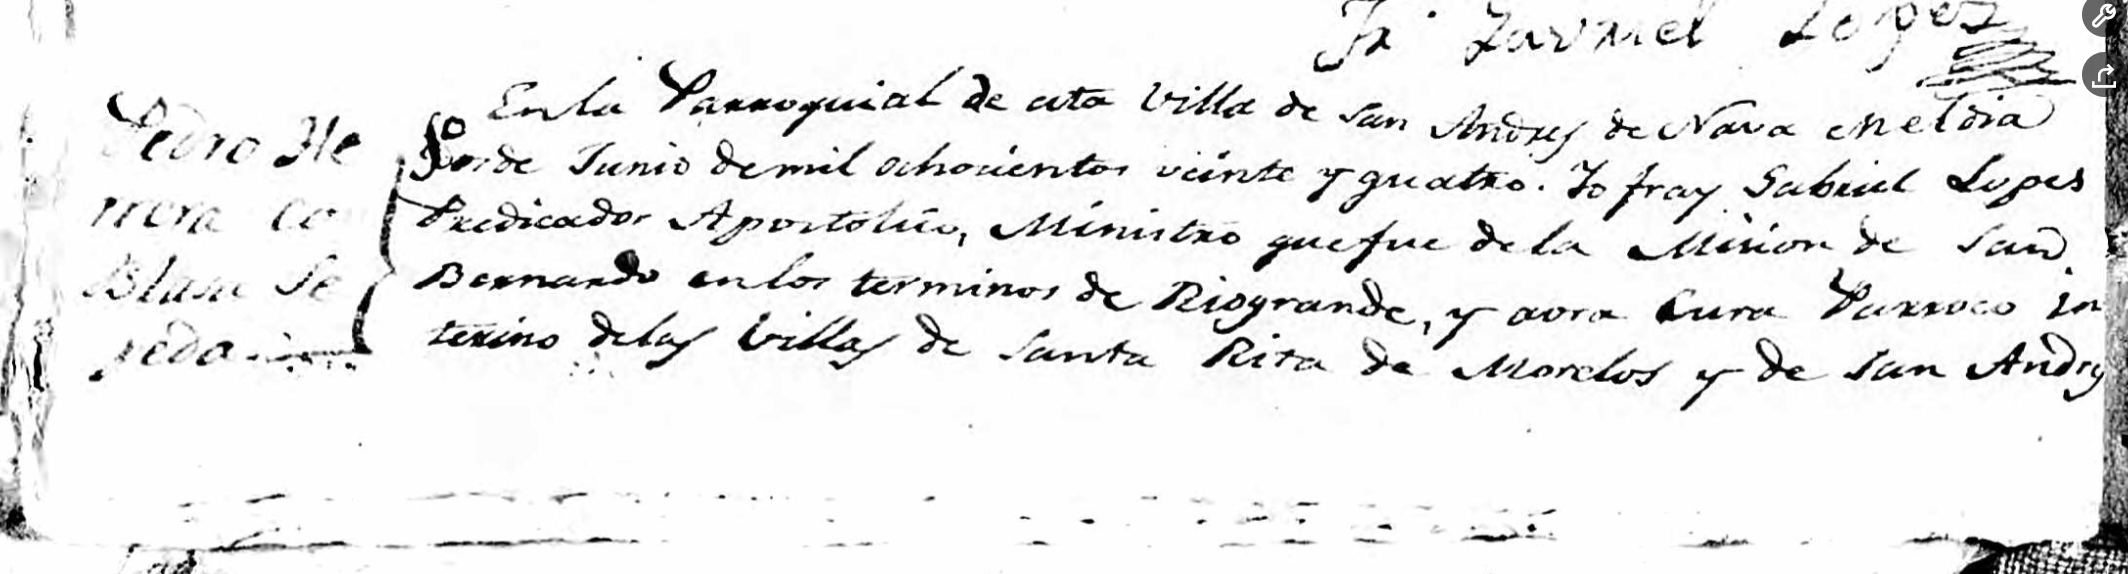 Fr. Gavriel Lopez
En la Parroquial de esta Villa de San Andres de Nava en el dia
dos de Junio de mil ochocientos veinte y quatro. Yo fray Gabriel Lopes
Predicador Apostolico, Ministro que fue de la Mision de San
Bernardo en los terminos de Riogrande, y aora Cura Parroco in
terino de las Villas de Santa Rita de Morelos y de San Andres
Pedro He
rrera co
Blasa Se
peda